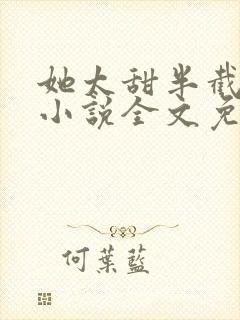 她太甜半截
小說全文免
何葉藍